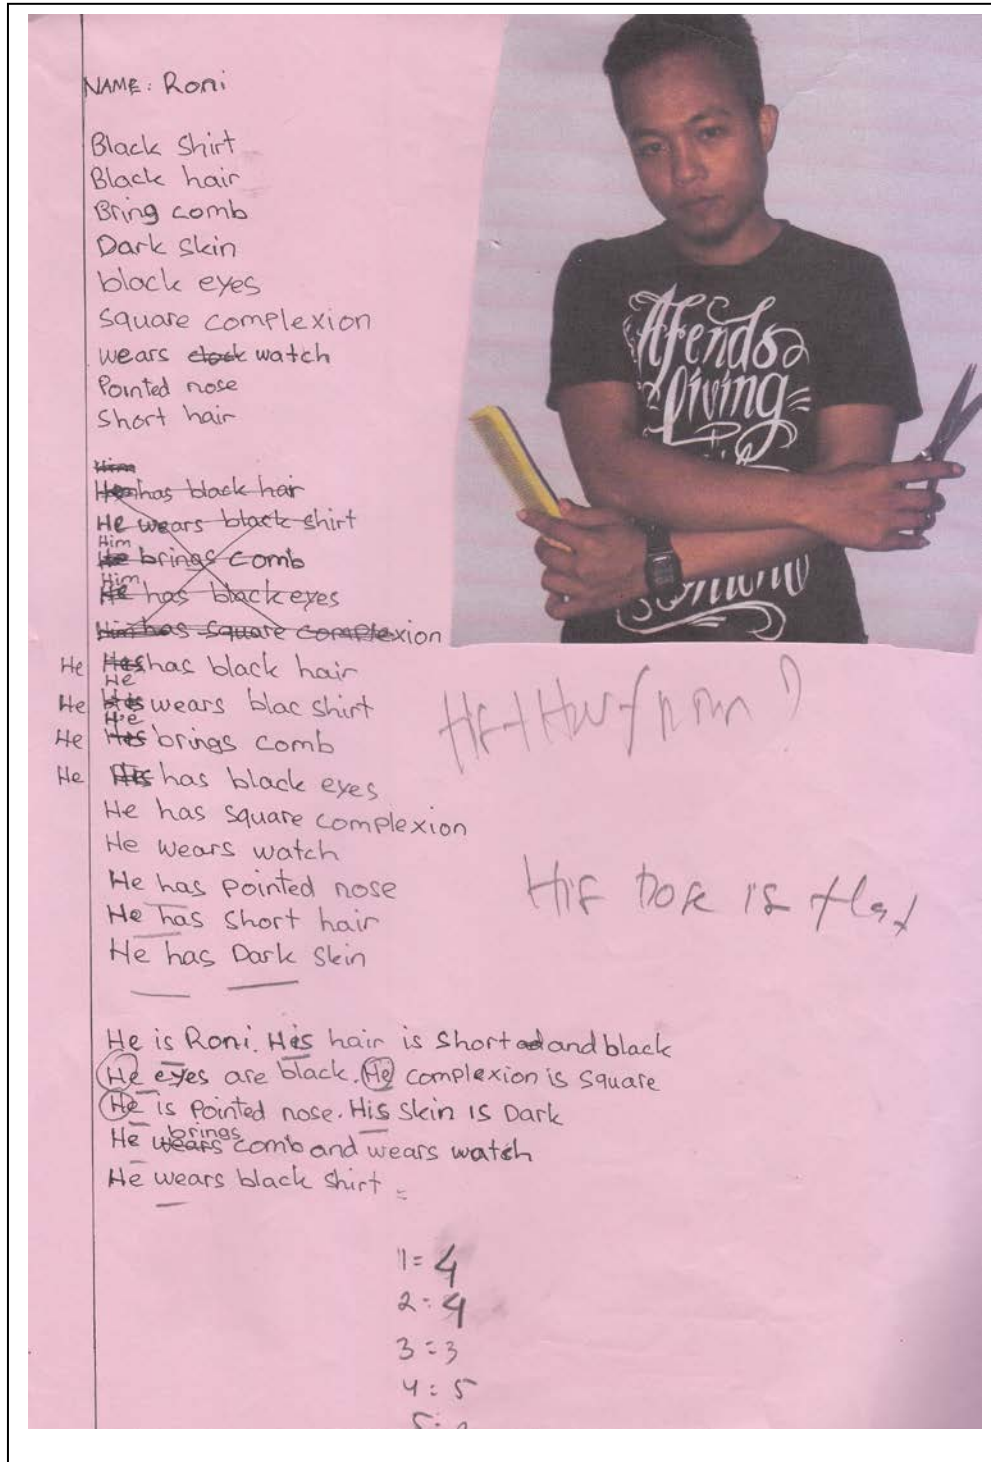 NAME: Roni
Black Shirt
Black hair
Bring comb
Dark skin
black eyes
Square complexion
wears clock watch
Pointed nose
Short hair
Afends
living
Him
has black hair
He wears black shirt
Him
He brings comb
Him
He has black eyes
Him has Square complexion
He His has black hair
He
He His wears blac shirt
He
He His brings comb
He His has black eyes
He has square complexion
He wears watch
He has pointed nose
He has short hair
He has Dark skin
His nose is flat
He is Roni. His hair is short and and black
He eyes are black. He complexion is square
He is Pointed nose. His skin is Dark
brings
He wears comb and wears watch
He wears black shirt
1 = 4
2 = 4
3 = 3
4 = 5